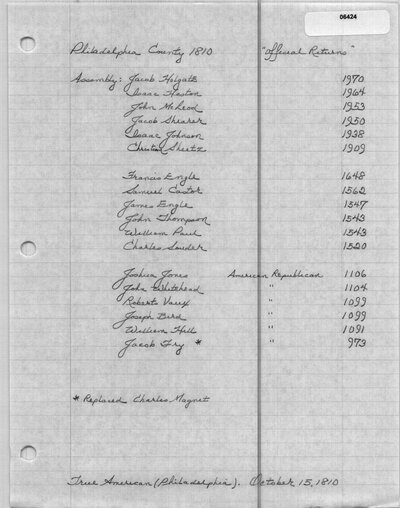 06424
Philadelphia County 1810 "Official Returns"
Assembly: Jacob Holgate 1970
Isaac Heston 1964
John McLeod 1953
Jacob Shearer 1950
Isaac Johnson 1938
Christian Sheetz 1909
Francis Engle 1648
Samuel Castor 1562
James Engle 1547
John Thompson 1543
William Paul 1543
Charles Souder 1520
Joshua Jones American Republican 1106
John Whitehead " 1104
Roberts Vaux " 1099
Joseph Bird " 1099
William Hall " 1091
Jacob Fry * " 973
* Replaced Charles Magnet
True American (Philadelphia). October 15, 1810